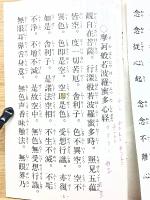 念念不離心
念念從心起
摩訶般若波羅蜜多心經
觀自在菩薩。行深般若波羅蜜多時。照見五蘊
皆空。度一切苦厄。舍利子。色不異空。空不
異色。色即是空。空即是色。受想行識。亦復
如是。舍利子。是諸法空相。不生不滅。不垢
不淨。不增不減。是故空中。無色無受想行識
無眼耳鼻舌身意。無色聲香味觸法。無眼界乃